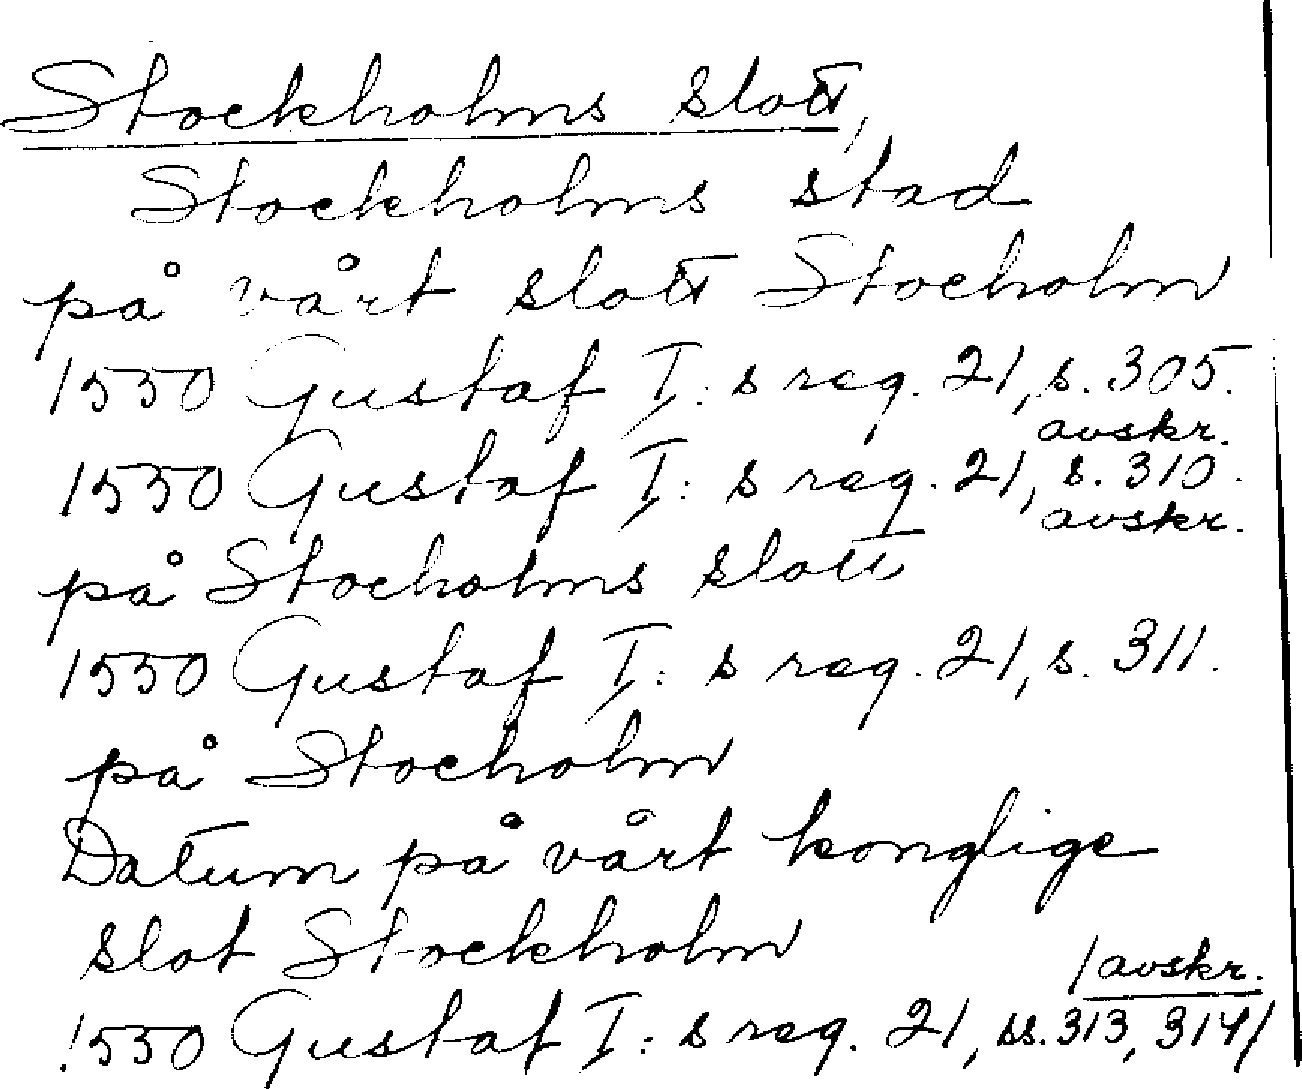 Stockholms slott,
Stockholms stad
på vårt slott Stocholm
1550 Gustaf I: s reg. 21, s. 305.
avskr.
1550 Gustaf I: s reg. 21, s. 310.
avskr.
på Stocholms slott
1550 Gustaf I: s reg. 21, s. 311.
på Stocholm
Datum på vårt konglige
slot Stockholm
/avskr.
1550 Gustaf I: s reg. 21, ss. 313, 314/